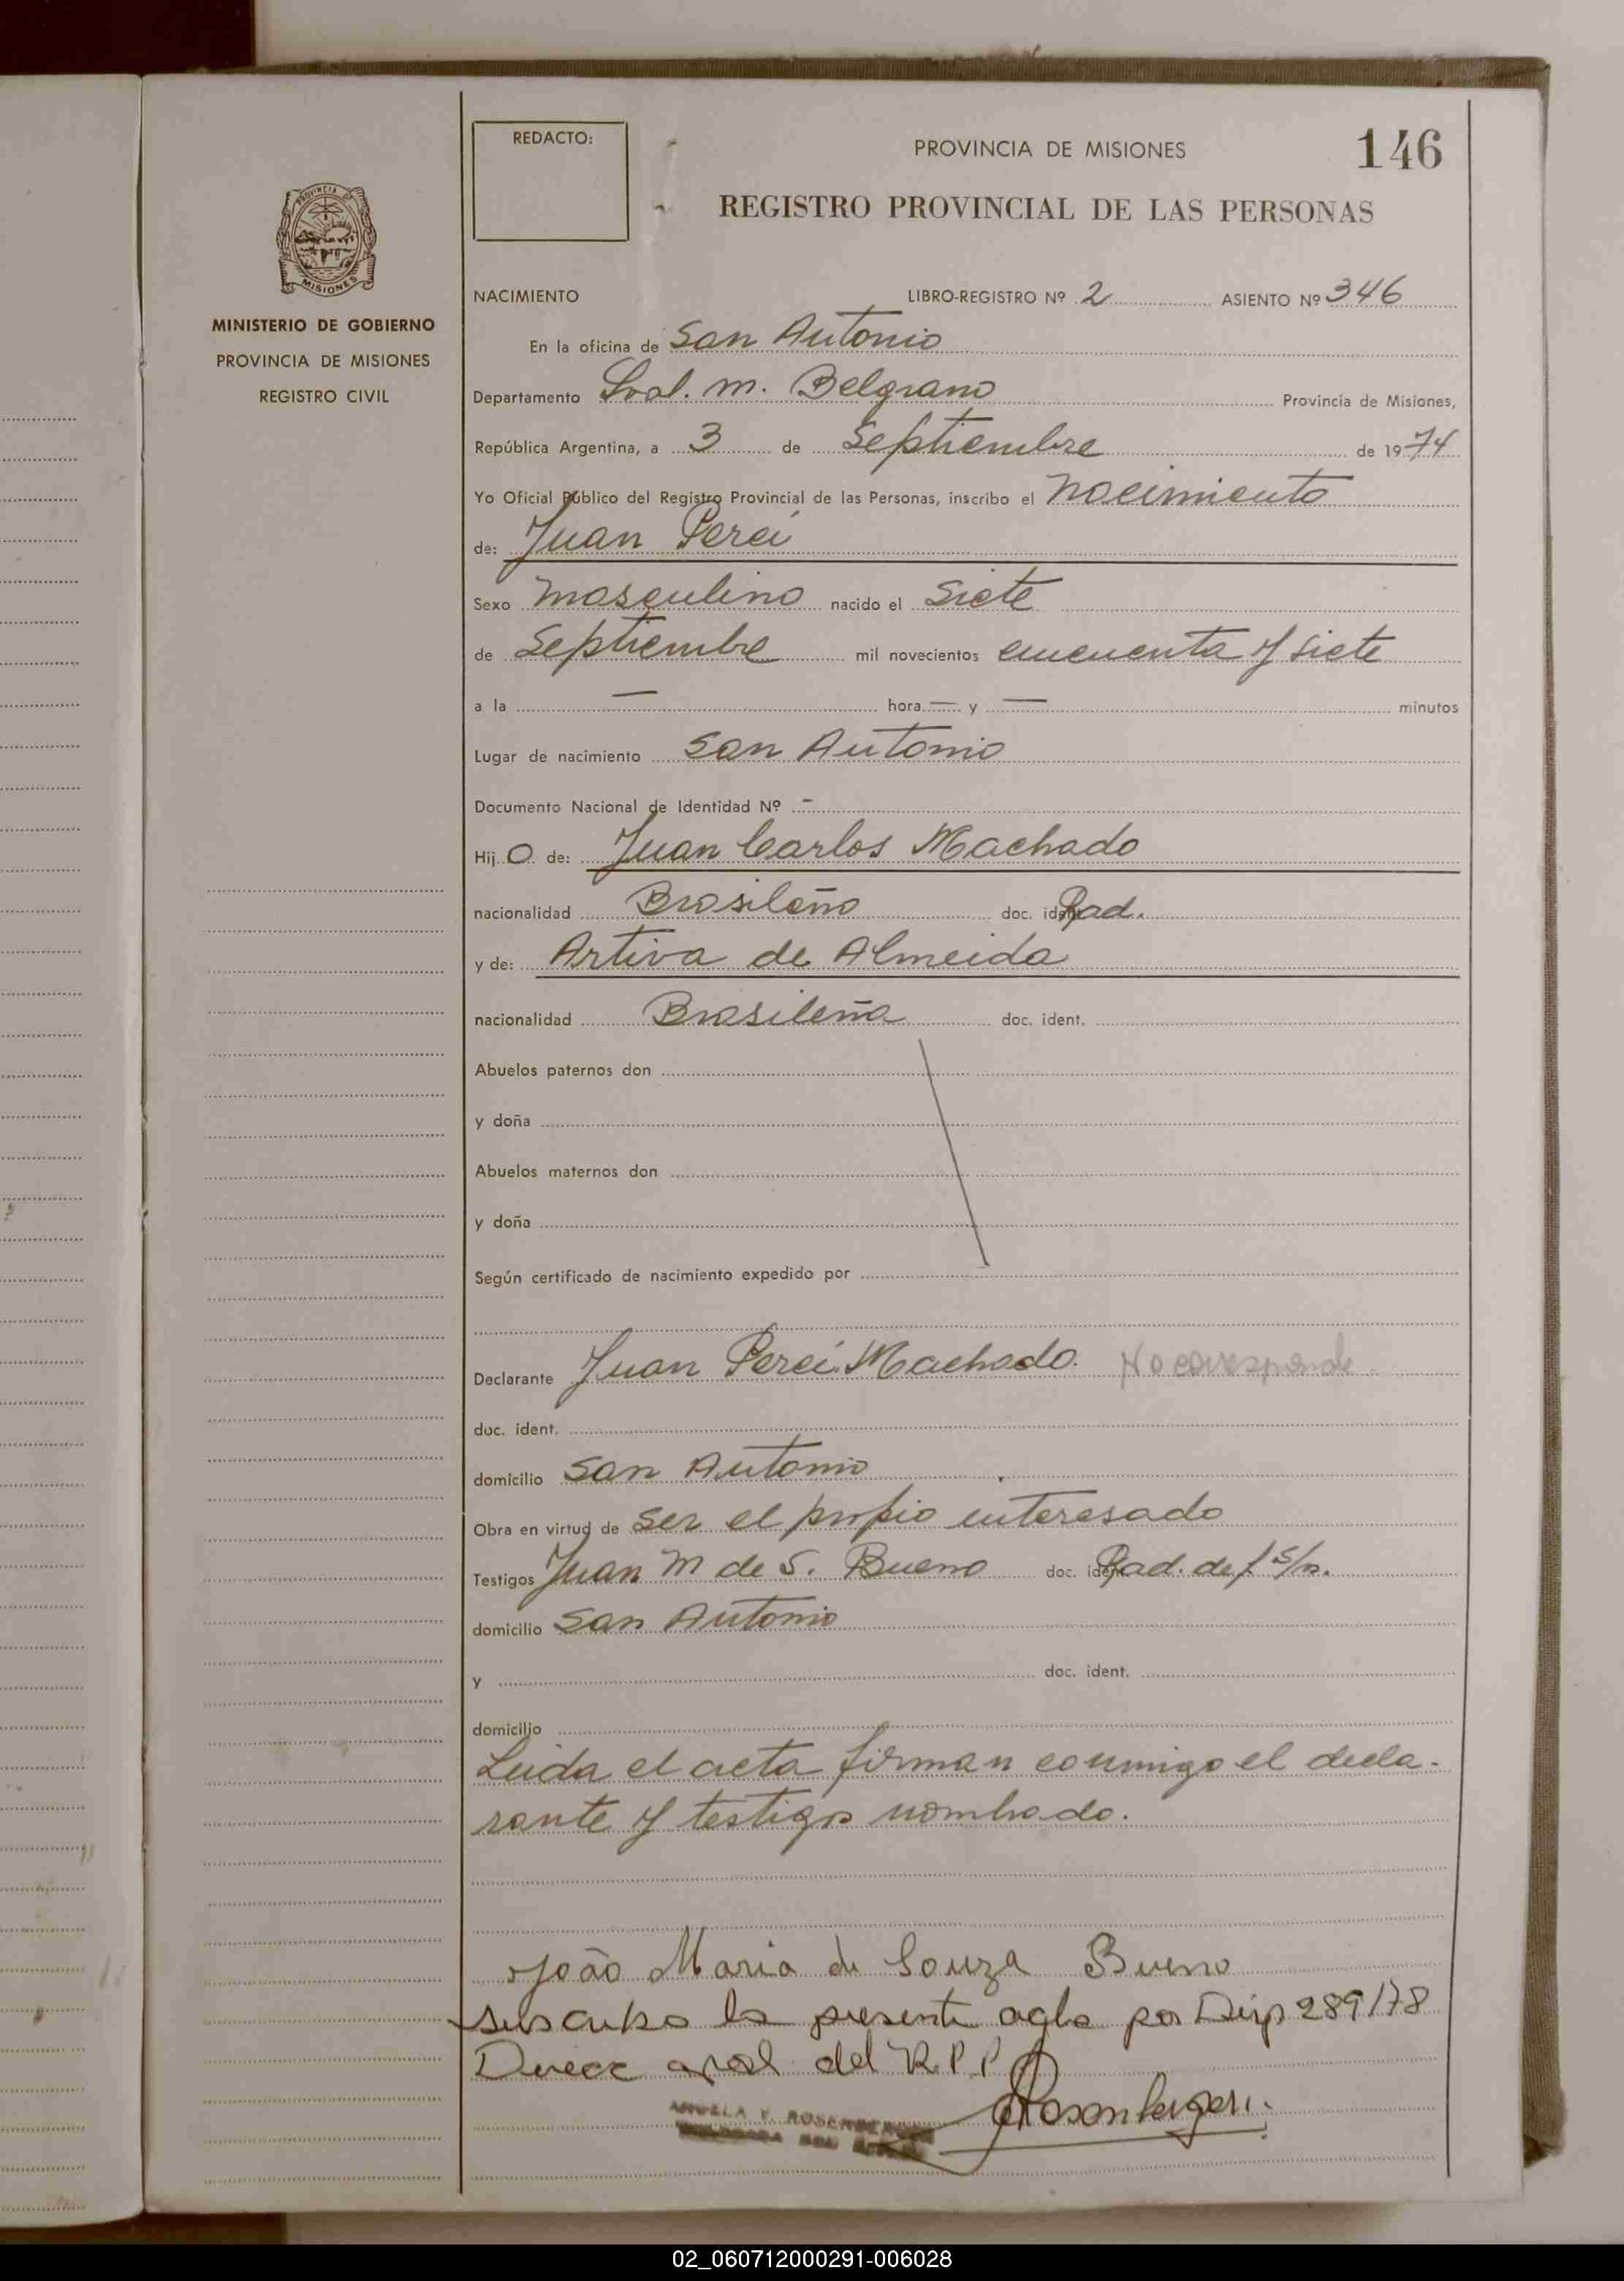 REDACTO:
PROVINCIA DE MISIONES
146
REGISTRO PROVINCIAL DE LAS PERSONAS
PROVINCIA DE
MISIONES
MINISTERIO DE GOBIERNO
PROVINCIA DE MISIONES
REGISTRO CIVIL
NACIMIENTO LIBRO-REGISTRO Nº 2 ASIENTO Nº 346
En la oficina de San Antonio
Departamento Gral. M. Belgrano Provincia de Misiones,
República Argentina, a 3 de Septiembre de 1974
Yo Oficial Público del Registro Provincial de las Personas, inscribo el nacimiento
de: Juan Perci
Sexo masculino nacido el siete
de Septiembre mil novecientos cincuenta y siete
a la — hora — y — minutos
Lugar de nacimiento San Antonio
Documento Nacional de Identidad Nº -
Hijo de: Juan Carlos Machado
nacionalidad Brasileño doc. ident. Rad.
y de: Artiva de Almeida
nacionalidad Brasileña doc. ident.
Abuelos paternos don
y doña
Abuelos maternos don
y doña
Según certificado de nacimiento expedido por
Declarante Juan Perci Machado. No corresponde.
doc. ident.
domicilio San Antonio
Obra en virtud de ser el propio interesado
Testigos Juan M de S. Bueno doc. ident. Rad. def s/n.
domicilio San Antonio
y doc. ident.
domicilio
Leida el acta firman conmigo el decla-
rante y testigo nombado.
João Maria de Souza Bueno
suscribo la presente acta por Disp 289/78
Direcc gral. del R.P.P
Rosenberger